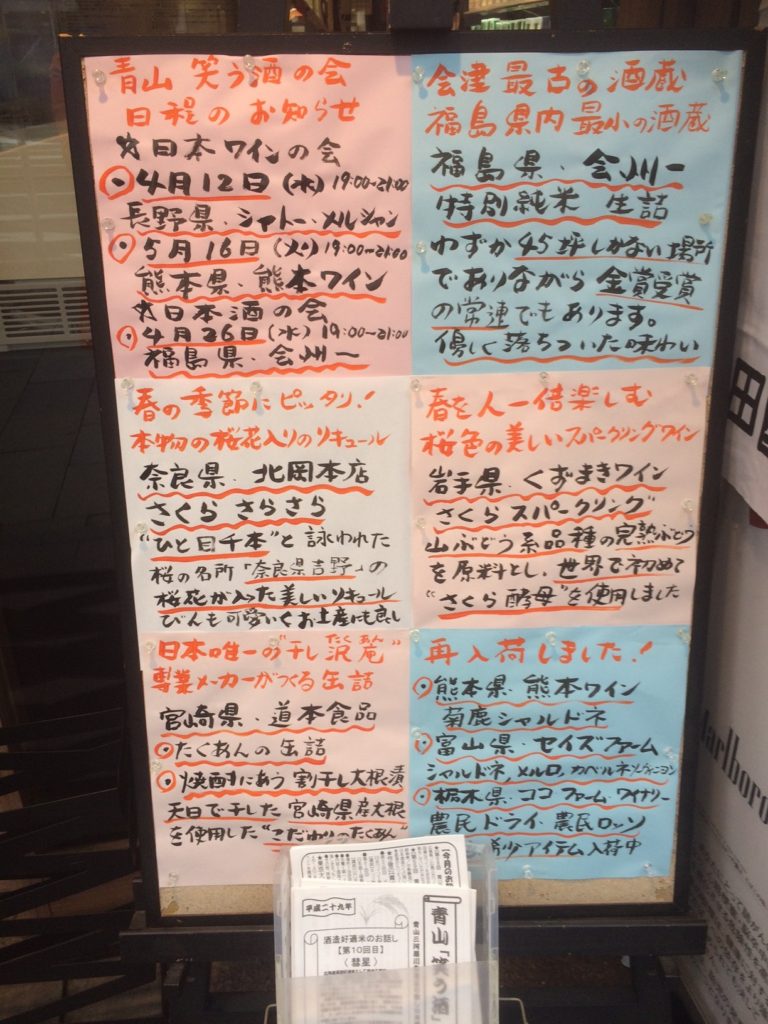 青山 笑う酒の会
日程のお知らせ
☆日本ワインの会
・4月12日(水)19:00~21:00
長野県・シャトー・メルシャン
・5月16日(火)19:00~21:00
熊本県・熊本ワイン
☆日本酒の会
・4月26日(水)19:00~21:00
福島県・会州一
会津最古の酒蔵
福島県内最小の酒蔵
福島県・会州一
特別純米 生詰
わずか45坪しかない場所
でありながら金賞受賞
の常連でもあります。
優しく落ちついた味わい
春の季節にピッタリ!
本物の桜花入りのリキュール
奈良県・北岡本店
さくら さらさら
"ひと目千本"と詠われた
桜の名所「奈良県吉野」の
桜花が入った美しいリキュール
びんも可愛いくお土産にも良し
春を人一倍楽しむ
桜色の美しいスパークリングワイン
岩手県・くずまきワイン
さくらスパークリング
山ぶどう系品種の完熟ぶどう
を原料とし、世界で初めて
"さくら酵母"を使用しました
日本唯一の"干し沢庵"
たくあん
専業メーカーがつくる缶詰
宮崎県・道本食品
・たくあんの缶詰
・焼酎にあう割干し大根漬
天日で干した宮崎県産大根
を使用した"こだわりのたくあん"
再入荷しました!
・熊本県・熊本ワイン
菊鹿シャルドネ
・富山県・セイズファーム
シャルドネ,メルロ,カベルネソーヴィニヨン
・栃木県・ココファーム・ワイナリー
農民ドライ・農民ロッソ
希少アイテム入荷中
平成二十九年
酒造好適米のお話し
【第10回目】
〈彗星〉
青山「笑う酒」
Marlboro